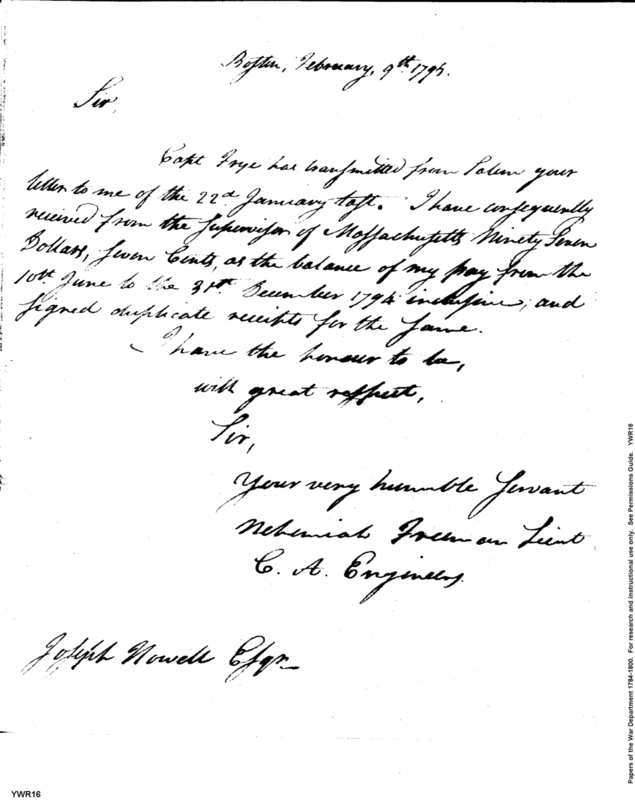 Boston, February, 9th. 1795.
Sir,
Capt Frye has transmitted from Salem your
letter to me of the 22d January last. I have consequently
received from the Supervisor of Massachusetts Ninety Seven
Dollars, Seven Cents, as the balance of my pay from the
10th June to the 31st. December 1794 inclusive; and
signed duplicate receipts for the same.
I have the honour to be,
with great respect,
Sir,
Your very humble Servant
Nehemiah Freeman Lieut
C. A. Engineers
Joseph Howell Esqr
YWR16
Papers of the War Department 1784-1800. For research and instructional use only. See Permissions Guide. YWR16